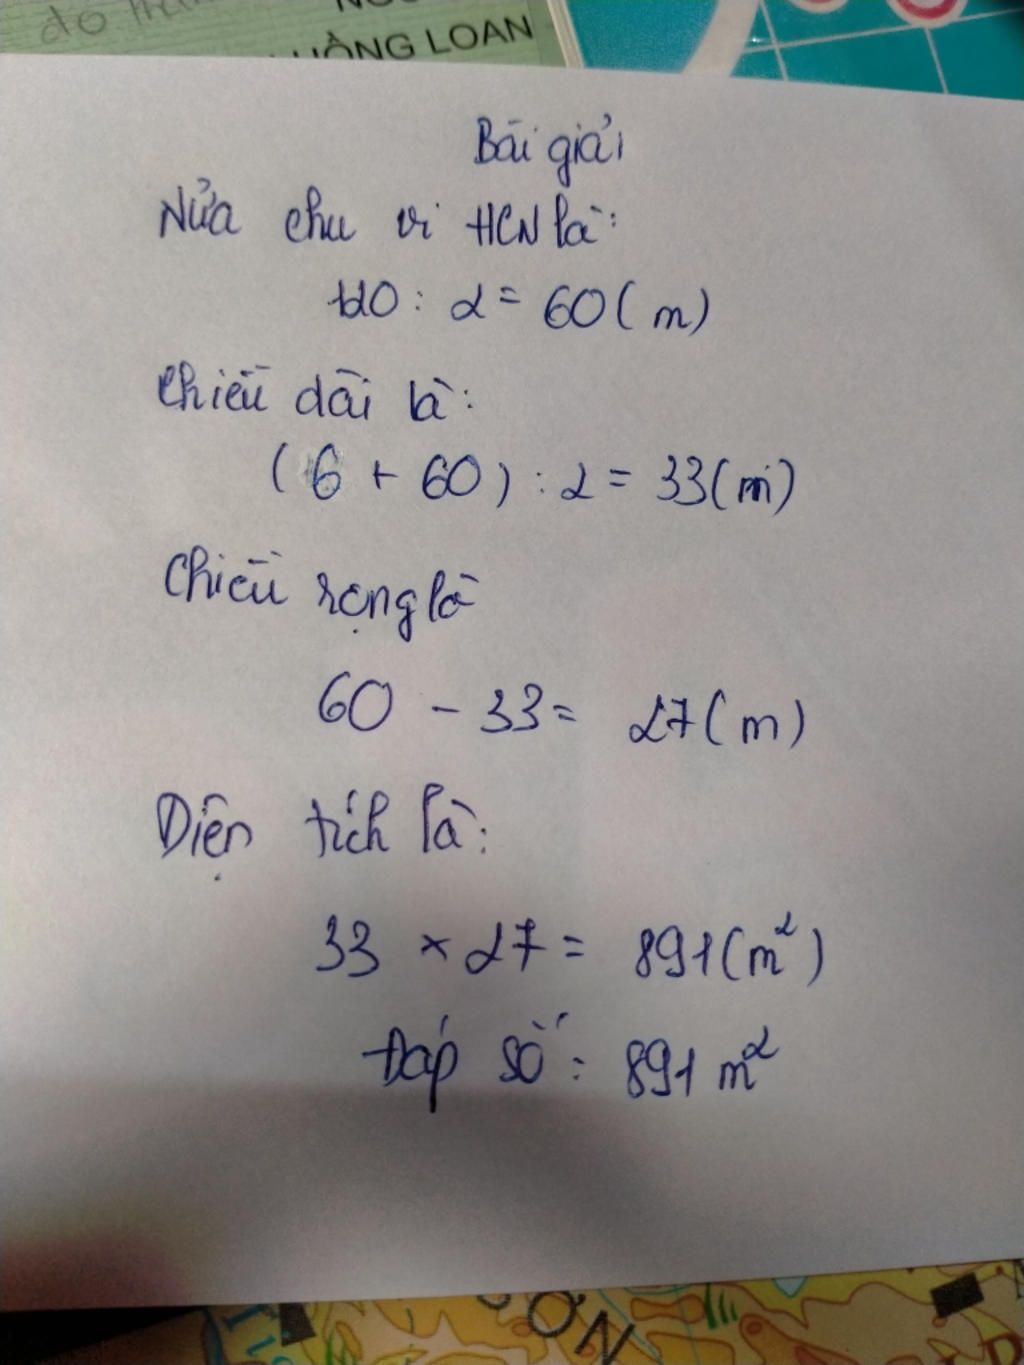 HỒNG LOAN
Bài giải
Nửa chu vi HCN là:
120 : 2 = 60 ( m )
Chiều dài là:
( 6 + 60 ) : 2 = 33 (m)
Chiều rộng là
60 - 33 = 27 ( m )
Diện tích là:
33 × 27 = 891 (m²)
Đáp số : 891 m²
ƠN